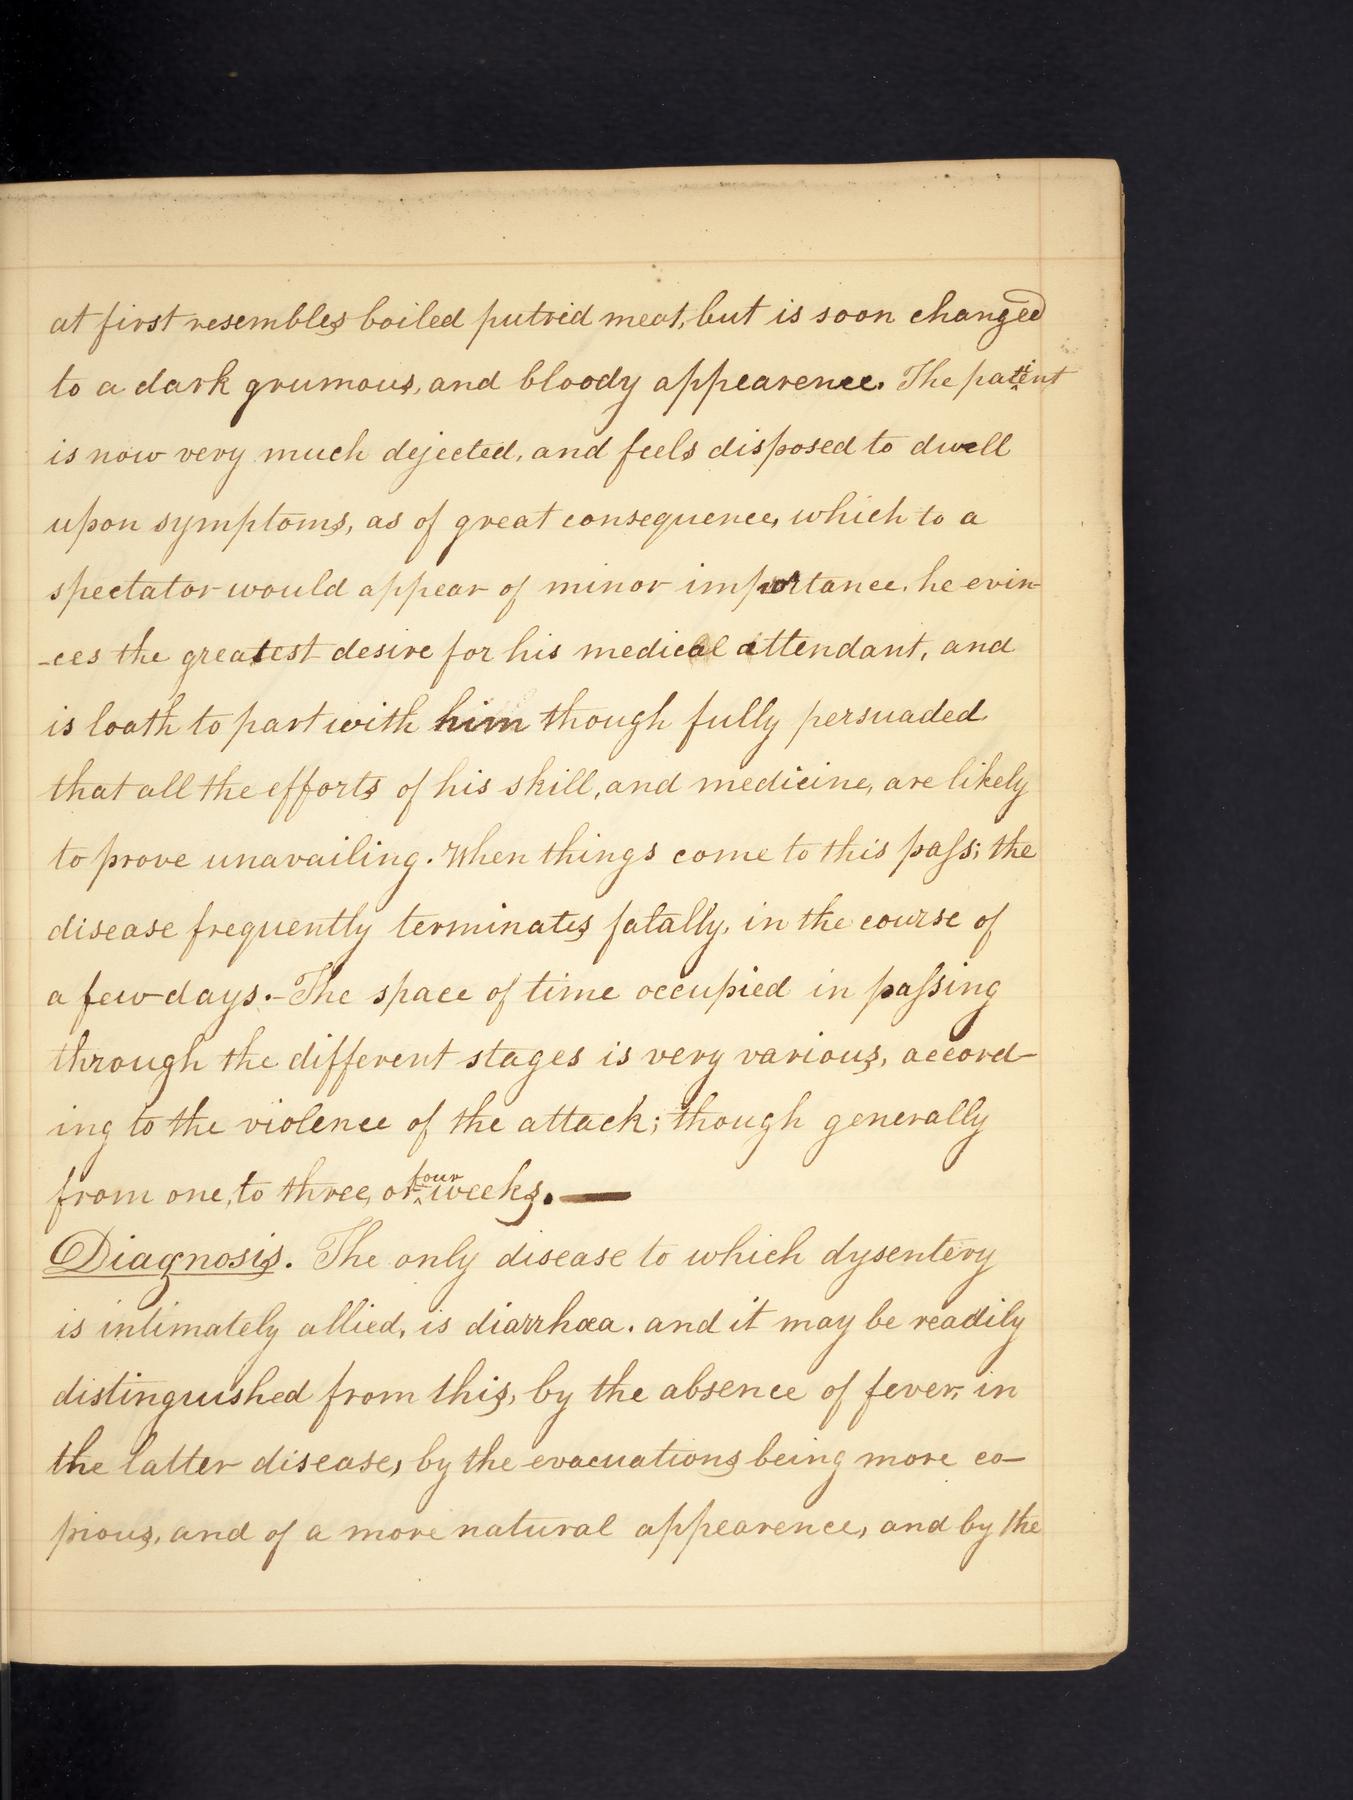 at first resembles boiled putrid meat, but is soon changed
to a dark grumous, and bloody appearence. The patient
is now very much dejected, and feels disposed to dwell
upon symptoms, as of great consequence, which to a
spectator would appear of minor importance. he evin-
-ces the greatest desire for his medical attendant, and
is loath to part with him though fully persuaded
that all the efforts of his skill, and medicine, are likely
to prove unavailing. When things come to this paſs; the
disease frequently terminates fatally, in the course of
a few days.- The space of time occupied in paſsing
through the different stages is very various, accord-
ing to the violence of the attack; though generally
from one, to three, or four weeks. —
Diagnosis. The only disease to which dysentery
is intimately allied, is diarrhœa. and it may be readily
distinguished from this, by the absence of fever, in
the latter disease, by the evacuations being more co-
pious, and of a more natural appearence, and by the